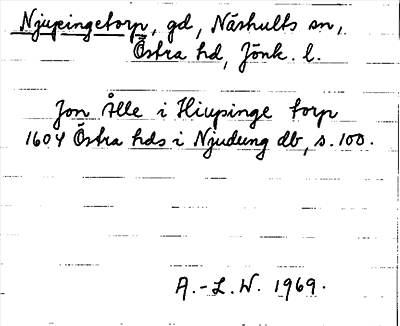 Njupingetorp, gd, Näshults sn,
Östra hd, Jönk. l.
Jon Ålle i Hiupinge torp
1604 Östra hds i Njudung db, s. 100.
A.-L. W. 1969.